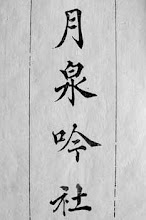 月泉吟社